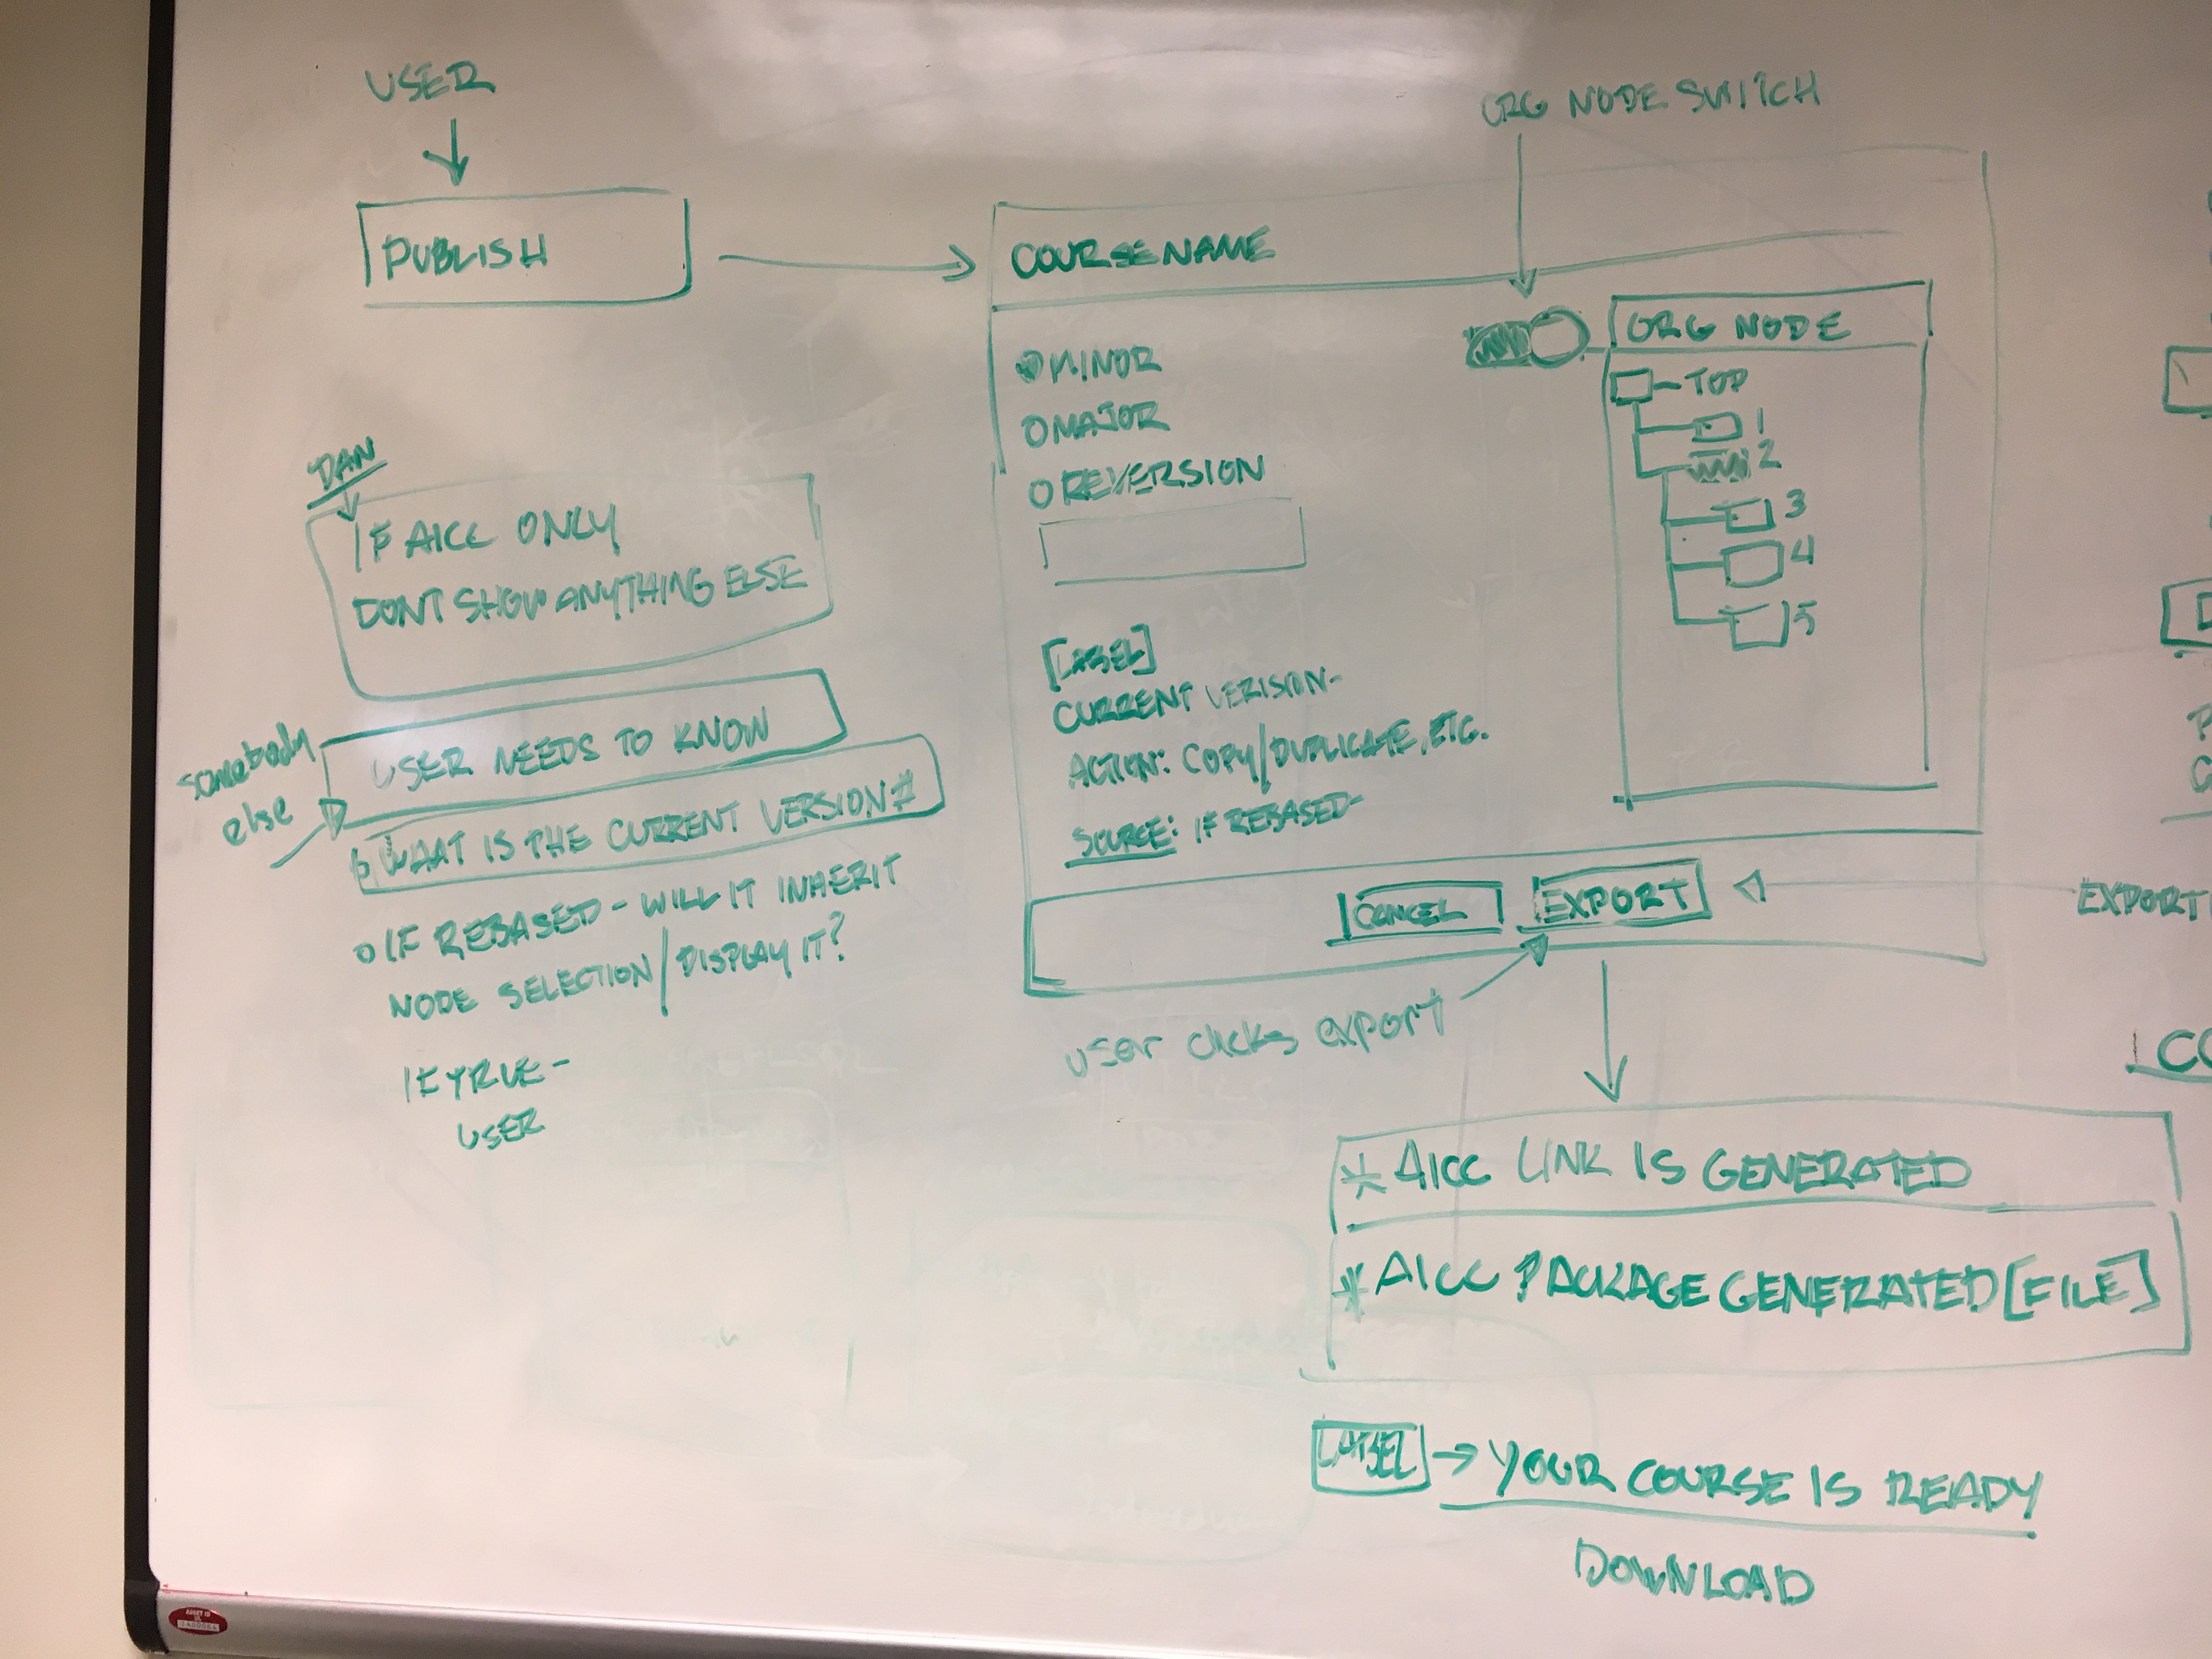 USER
PUBLISH
DAN
IF AICC ONLY
DONT SHOW ANYTHING ELSE
somebody
else
USER NEEDS TO KNOW
WHAT IS THE CURRENT VERSION#
O IF REBASED - WILL IT INHERIT
NODE SELECTION / DISPLAY IT?
IF TRUE -
USER
ORG NODE SWITCH
COURSE NAME
O MINOR
O MAJOR
O REVERSION
[LABEL]
CURRENT VERISION-
ACTION: COPY/DUPLICATE, ETC.
SOURCE: IF REBASED-
ORG NODE
TOP
1
2
3
4
5
CANCEL
EXPORT
EXPORT
user clicks export
* AICC LINK IS GENERATED
* AICC PACKAGE GENERATED [FILE]
LABEL → YOUR COURSE IS READY
DOWNLOAD